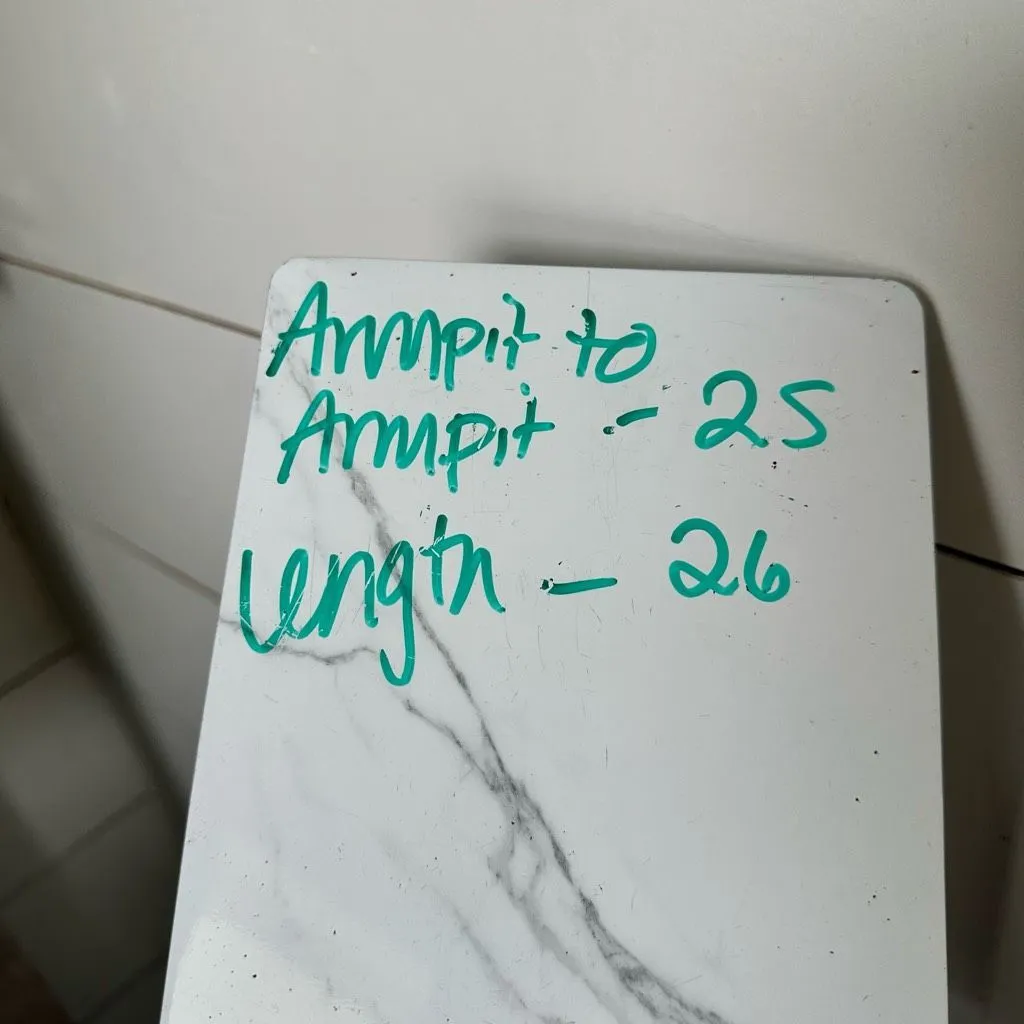 Armpit to
Armpit - 25
Length - 26